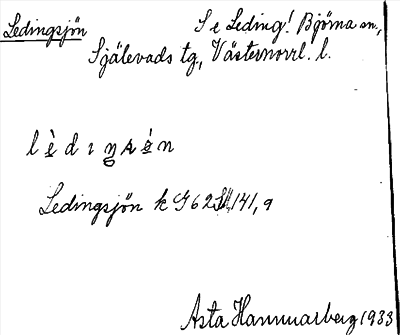 Ledingsjön S e Leding! Björna sn,
Själevads tg, Västernorrl. l.
lèdıŋsɵ́n
Ledingsjön k G62SÖ, 141, 9
Asta Hammarberg 1933